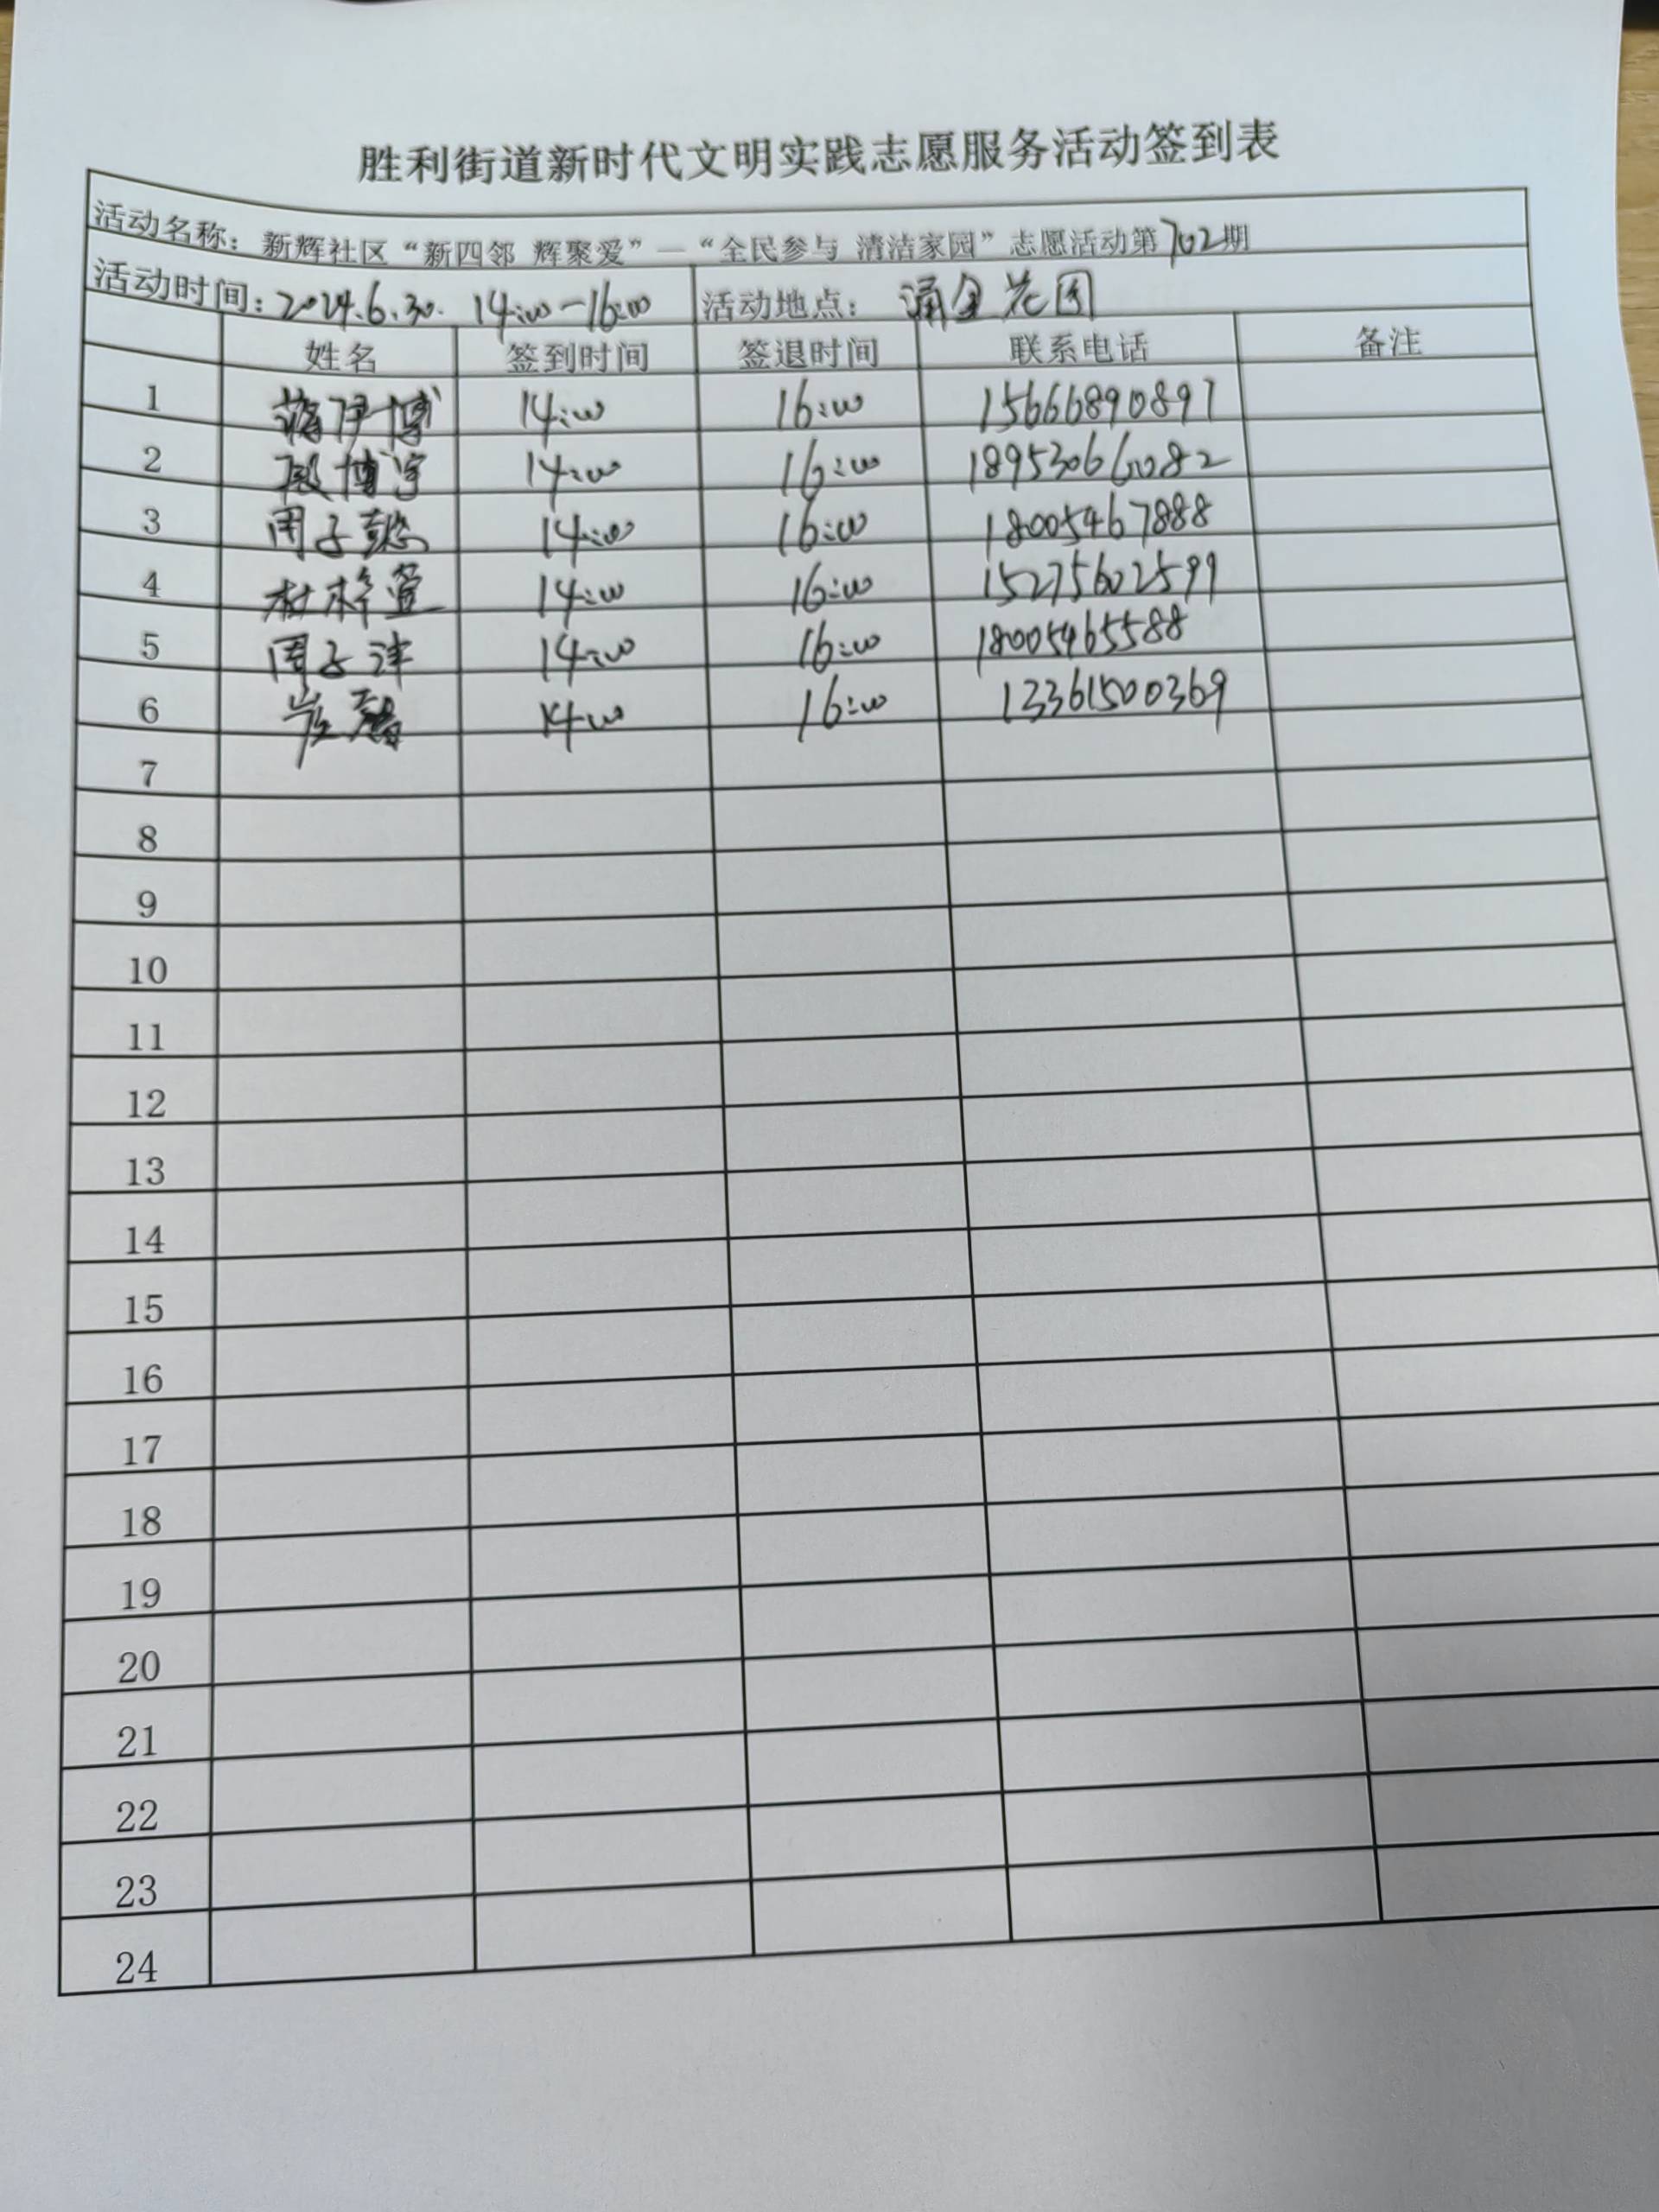 胜利街道新时代文明实践志愿服务活动签到表
活动名称：新辉社区“新四邻 辉聚爱”—“全民参与 清洁家园”志愿活动第702期
活动时间：2024.6.30. 14:00-16:00 活动地点：涌金花园
姓名 签到时间 签退时间 联系电话 备注
1 蒋伊博 14:00 16:00 15666890897
2 殷博宇 14:00 16:00 18953066082
3 周子懿 14:00 16:00 18005467888
4 杜梓萱 14:00 16:00 15275602599
5 周子沣 14:00 16:00 18005465588
6 14:00 16:00 13361500369
7
8
9
10
11
12
13
14
15
16
17
18
19
20
21
22
23
24